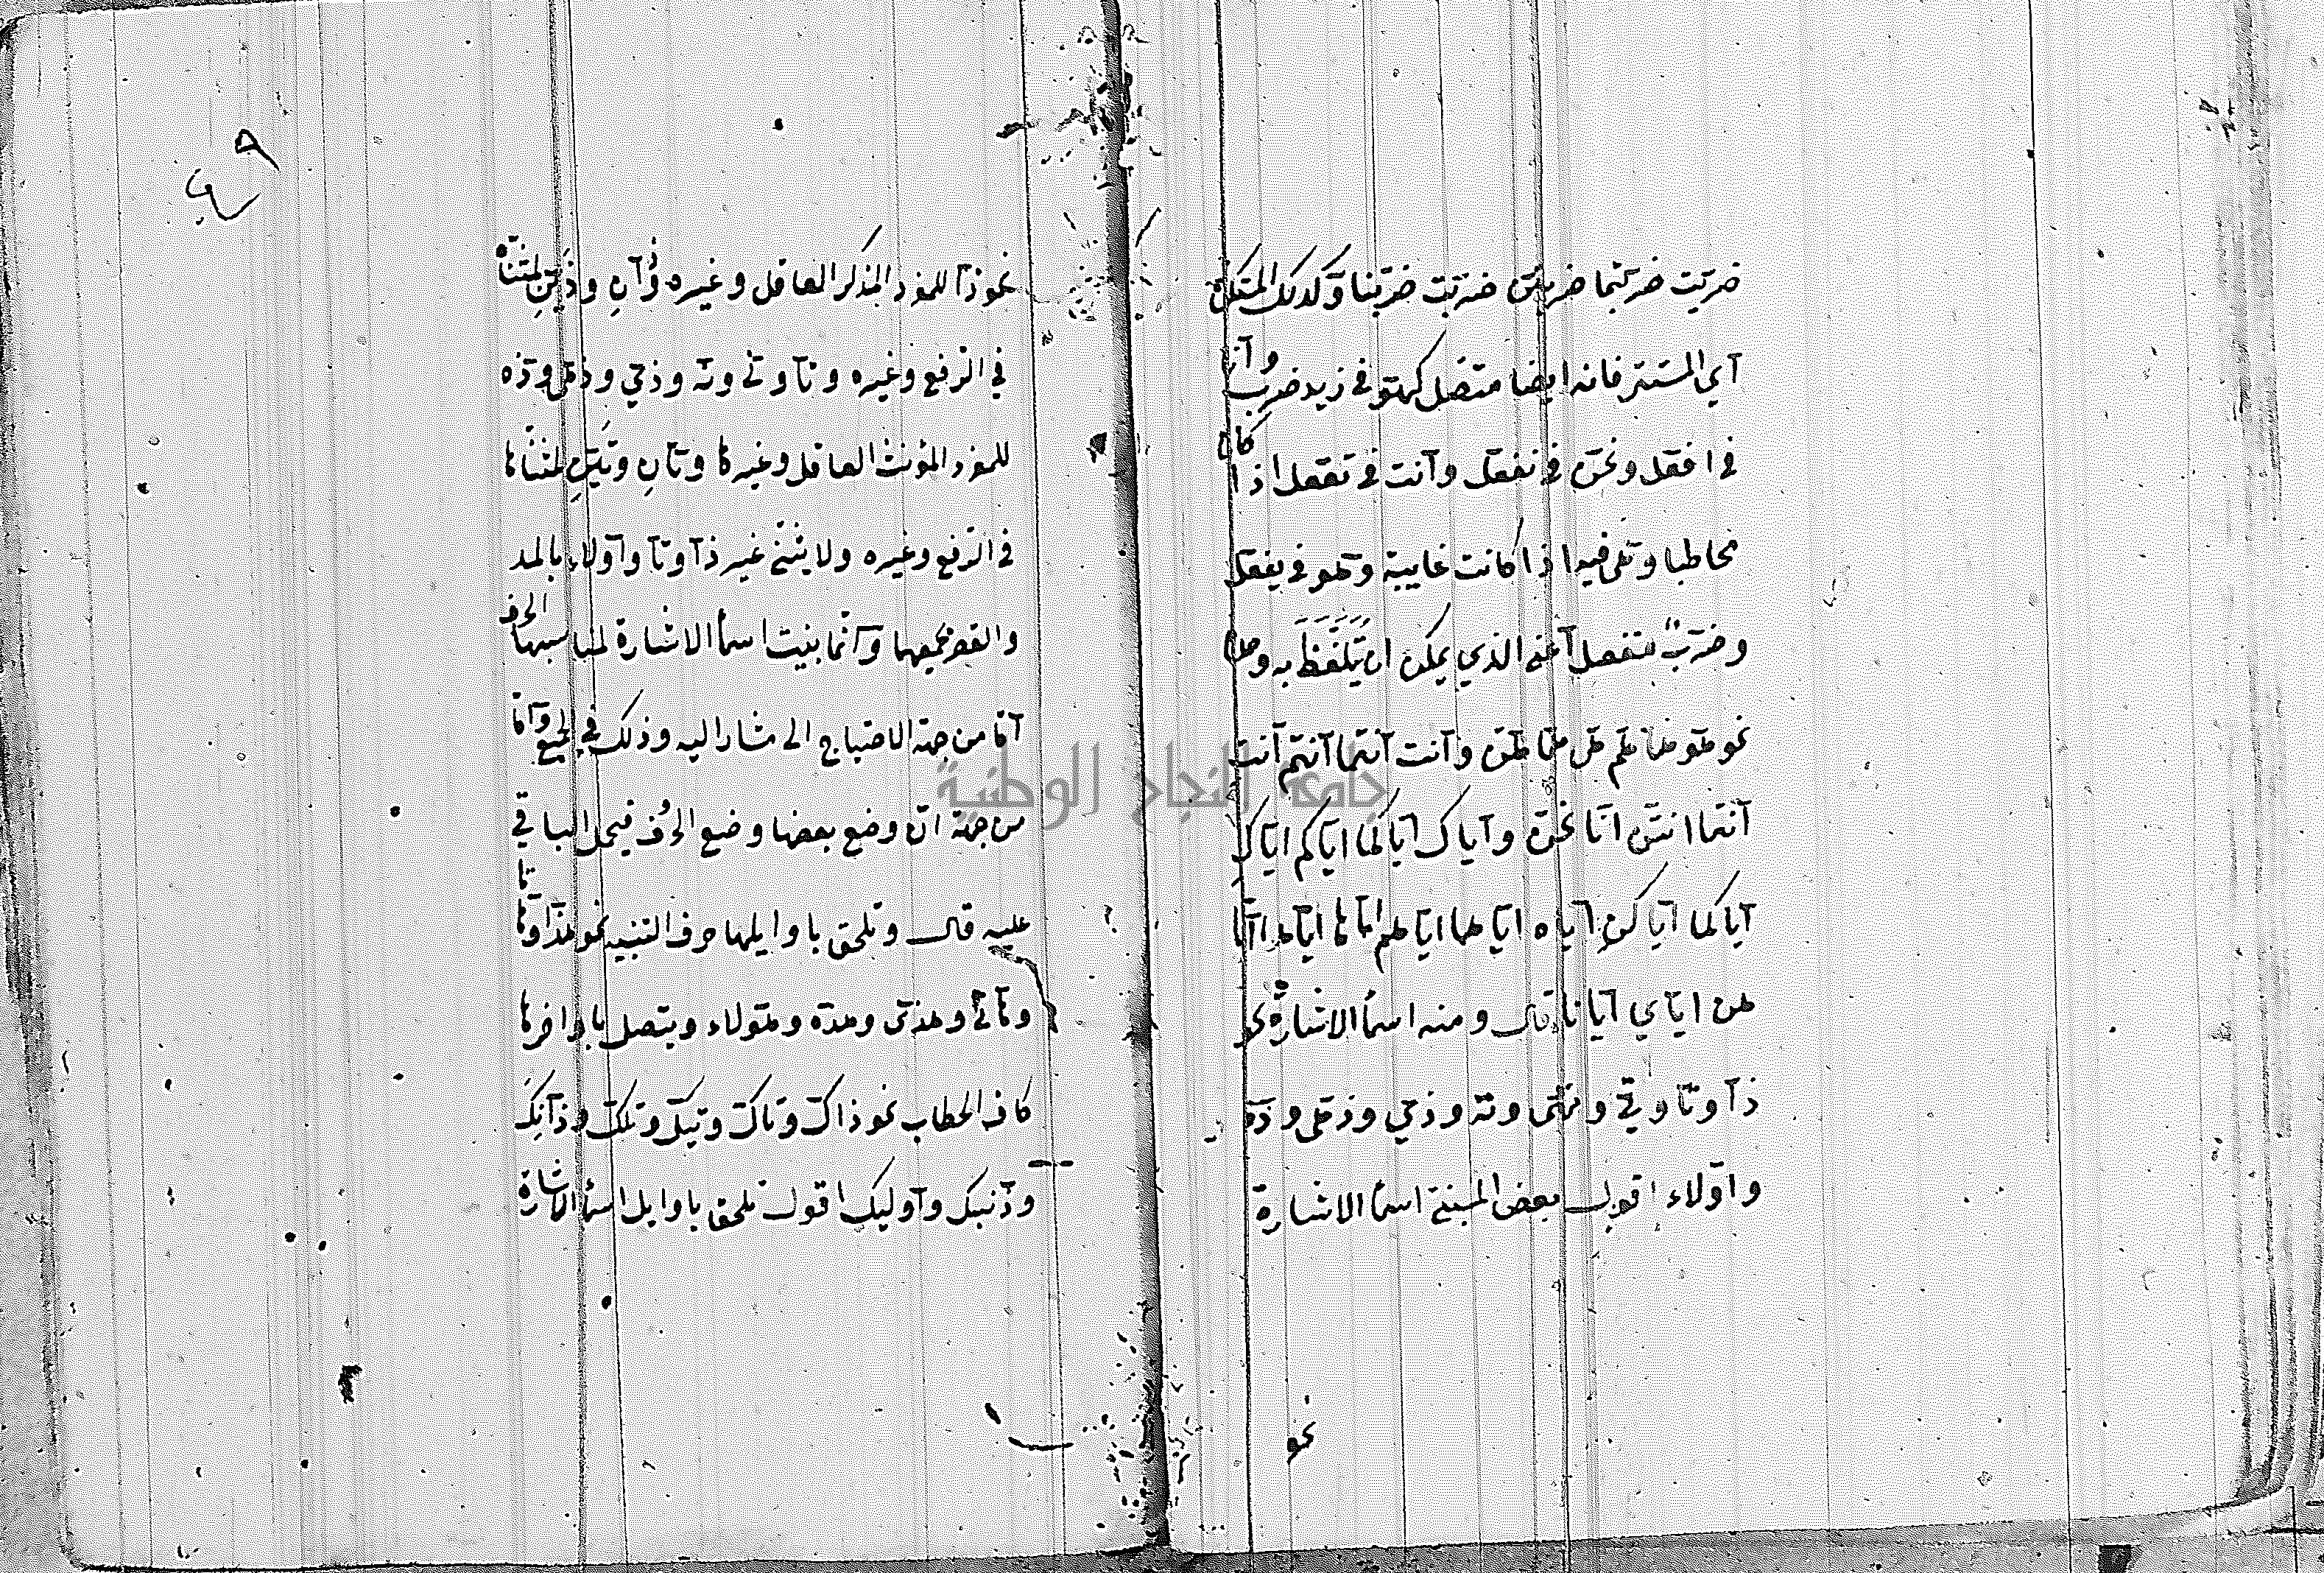 ضربت ضربتما ضربتن ضربت ضربنا وكذلك المستكن
اي المستتر فانه ايضا متصل كهو في زيد ضرب وانا
في افعل ونحن في نفعل وانت في تفعل اذا كان
مخاطبا وهي فيه اذا كانت غايبة وهو في يفعل
وضرب منفصل اعني الذي يمكن ان يتلفظ به وحده
نحو هو هما هم هي هما هن وانت انتما انتم انت
انتما انتن انا نحن واياك اياكما اياكم اياك
اياكما اياكن اياه اياهما اياهم اياها اياهما ايا
هن اياي ايانا قال ومنه اسما الاشارة نحو
ذا وتا وتي وتهي وته وذي وذهي وذه
واولاء اقول بعض المبني اسما الاشارة
نحو
٤٩
نحو ذا للمفرد المذكر العاقل وغيره وذان وذين لمثناه
في الرفع وغيره وتا وتي وته وذي وذهي وذه
للمفرد المؤنث العاقل وغيرها وتان وتين لمثناها
في الرفع وغيره ولا يثنى غير ذا وتا واولاء بالمد
والقصر لجميعهما وانما بنيت اسما الاشارة لمناسبتها الحرف
اما من جهة الاحتياج الى مشار اليه وذلك في الجميع واما
من جهة ان وضع بعضها وضع الحرف فيحمل الباقي
عليه قال وتلحق باوايلها حرف التنبيه نحو هذا وهاتا
وهاتي وهذي وهذه وهؤلاء ويتصل باواخرها
كاف الخطاب نحو ذاك وتاك وتيك وتلك وذانك
وذينك واوليك اقول تلحق باوايل اسما الاشارة
جامعة النجاح الوطنية